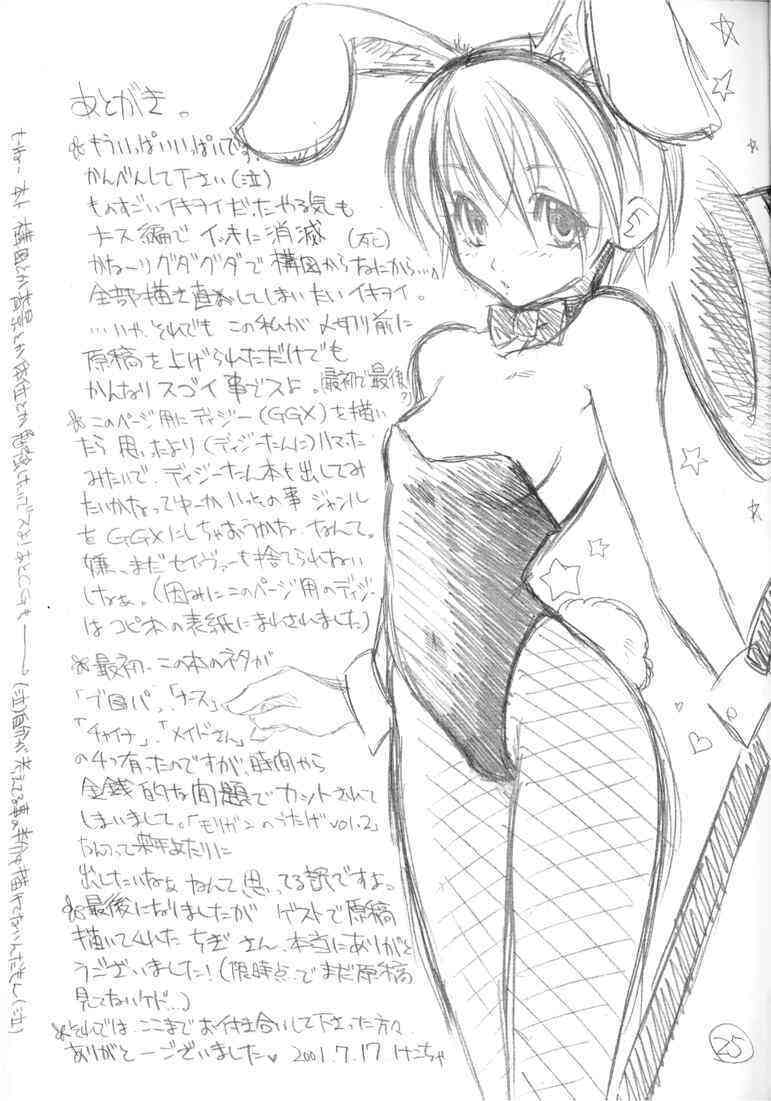 あとがき。
もういっぱいいっぱいです。
かんべんして下さい(泣)
ものすごいイキヲイだったやる気も
ナース編でイッキに消滅(死)
かなーりグダグダで構図からなにから…
全部描き直してしまいたいイキヲイ。
…いや、それでもこの私が〆切り前に
原稿を上げられただけでも
かんなりスゴイ事でスよ。(最初で最後?)
このページ用にディジー(GGX)を描い
たら思ったより(ディジーたんに)ハマった
みたいで、ディジーたん本も出してみ
たいかなってゆーかいっその事ジャンル
をGGXにしちゃおうかな、なんて。
嫌、まだセイヴァーも捨てられない
しなぁ。(因みにこのページ用のディジー
はコピ本の表紙にまわされました)
最初、この本のネタが
「ブロパ」、「ナース」
「チャイナ」、「メイドさん」
の4つ有ったのですが、時間から
金銭的な問題でカットされて
しまいまして。「モリガンのうたげvol.2」
なんつって来年あたりに
出したいなぁなんて思ってる訳ですよ。
最後になりましたが ゲストで原稿
描いてくれた ちぎさん、本当にありがと
うございました!(現時点でまだ原稿
見てないケド…)
それでは、ここまでお付き合いして下さった方々、
ありがとーございました 2001.7.17 けこちゃ
25